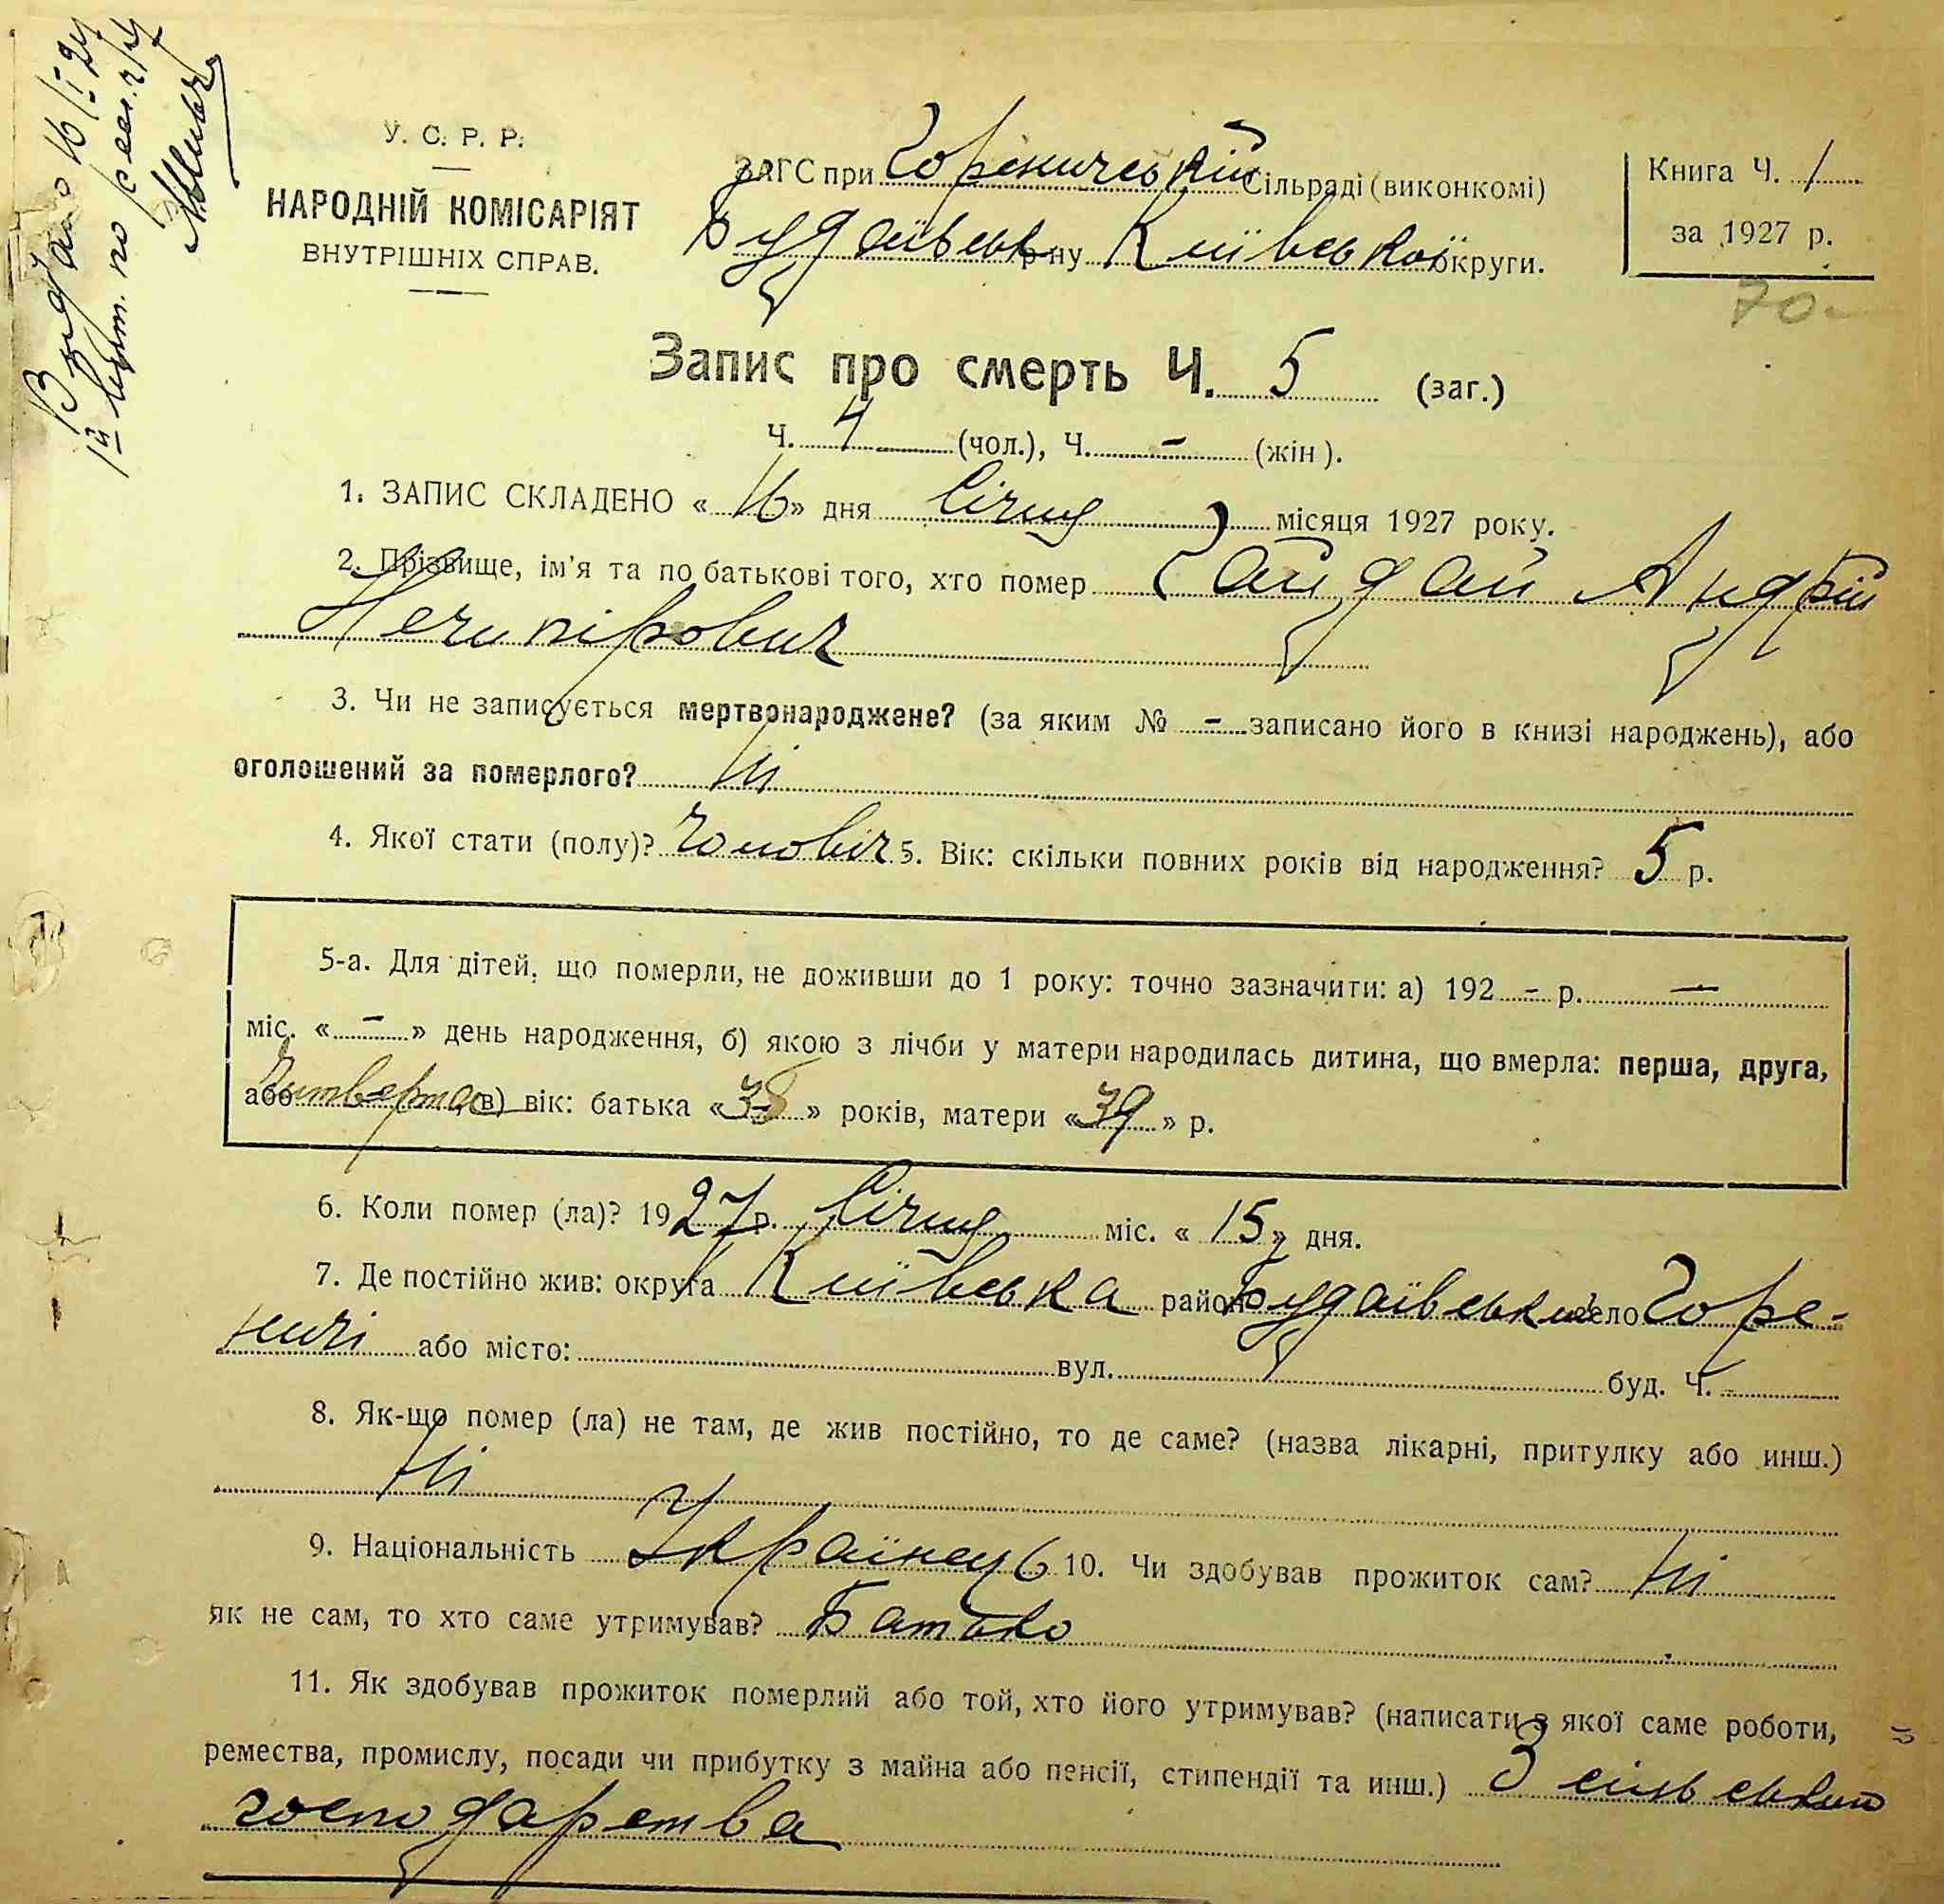 Видано 16/I 27
1й серт. по
У. С. Р. Р.
НАРОДНІЙ КОМІСАРІЯТ
ВНУТРІШНІХ СПРАВ.
ЗАГС при Гореничській Сільраді (виконкомі)
Будаївськ р-ну Київської округи.
Книга Ч. 1
за 1927 р.
70
Запис про смерть Ч. 5 (заг.)
Ч. 4 (чол.), Ч. - (жін).
1. ЗАПИС СКЛАДЕНО « 16 » дня Січня місяця 1927 року.
2. Прізвище, ім'я та по батькові того, хто помер Гайдай Андрій
Нечипірович
3. Чи не записується мертвонароджене? (за яким № - записано його в книзі народжень), або
оголошений за померлого? Ні
4. Якої стати (полу)? Чоловіч 5. Вік: скільки повних років від народження? 5 р.
5-а. Для дітей, що померли, не доживши до 1 року: точно зазначити: а) 192 - р. —
міс. « - » день народження, б) якою з лічби у матери народилась дитина, що вмерла: перша, друга,
або Читверта в) вік: батька « 38 » років, матери « 39 » р.
6. Коли помер (ла)? 1927 р. Січня міс. « 15 » дня.
7. Де постійно жив: округа Київська район Будаївський село Горе-
ничі або місто: вул. буд. Ч.
8. Як-що помер (ла) не там, де жив постійно, то де саме? (назва лікарні, притулку або инш.)
Ні
9. Національність Українець 10. Чи здобував прожиток сам? Ні
як не сам, то хто саме утримував? Батько
11. Як здобував прожиток померлий або той, хто його утримував? (написати з якої саме роботи,
ремества, промислу, посади чи прибутку з майна або пенсії, стипендії та инш.) З сільського
господарства